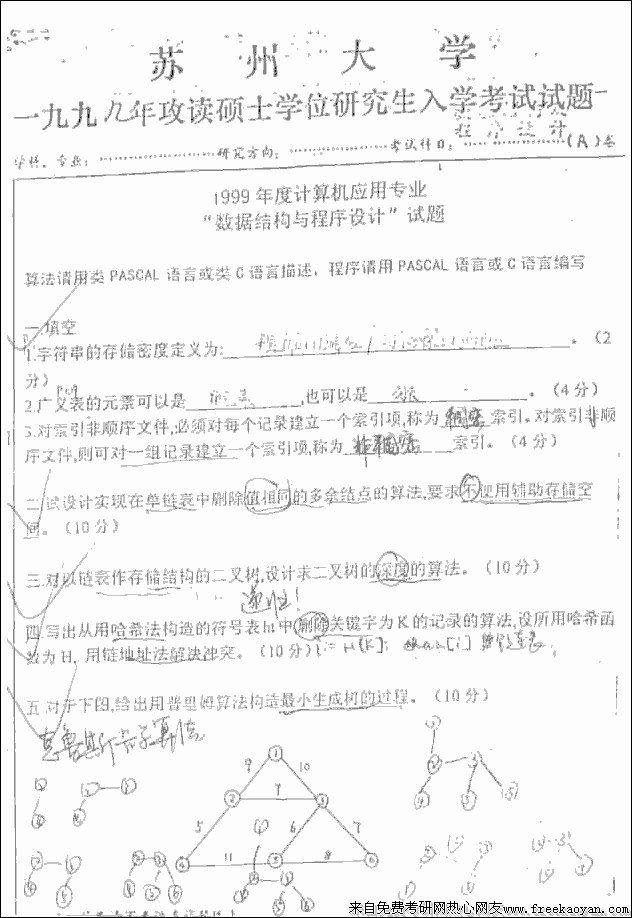 苏州大学
一九九九年攻读硕士学位研究生入学考试试题
程序设计
学科、专业: 研究方向: 考试科目: (A)卷
1999年度计算机应用专业
“数据结构与程序设计”试题
算法请用类PASCAL语言或类C语言描述，程序请用PASCAL语言或C语言编写
一.填空
1.字符串的存储密度定义为: 。(2
分)
2.广义表的元素可以是 ,也可以是 。(4分)
3.对索引非顺序文件,必须对每个记录建立一个索引项,称为 稠密 索引。对索引非顺
序文件,则可对一组记录建立一个索引项,称为 非稠密 索引。(4分)
二.试设计实现在单链表中删除值相同的多余结点的算法,要求不使用辅助存储空
间。(10分)
三.对以链表作存储结构的二叉树,设计求二叉树的深度的算法。(10分)
递归!
四.写出从用哈希法构造的符号表ht中删除关键字为K的记录的算法,设所用哈希函
数为H, 用链地址法解决冲突。(10分) i:=H(K);
五.对于下图,给出用普里姆算法构造最小生成树的过程。(10分)
克鲁斯卡尔算法
1
9 10
2 7 3
5 6 7
4 11 5 8 6
来自免费考研网热心网友www.freekaoyan.com